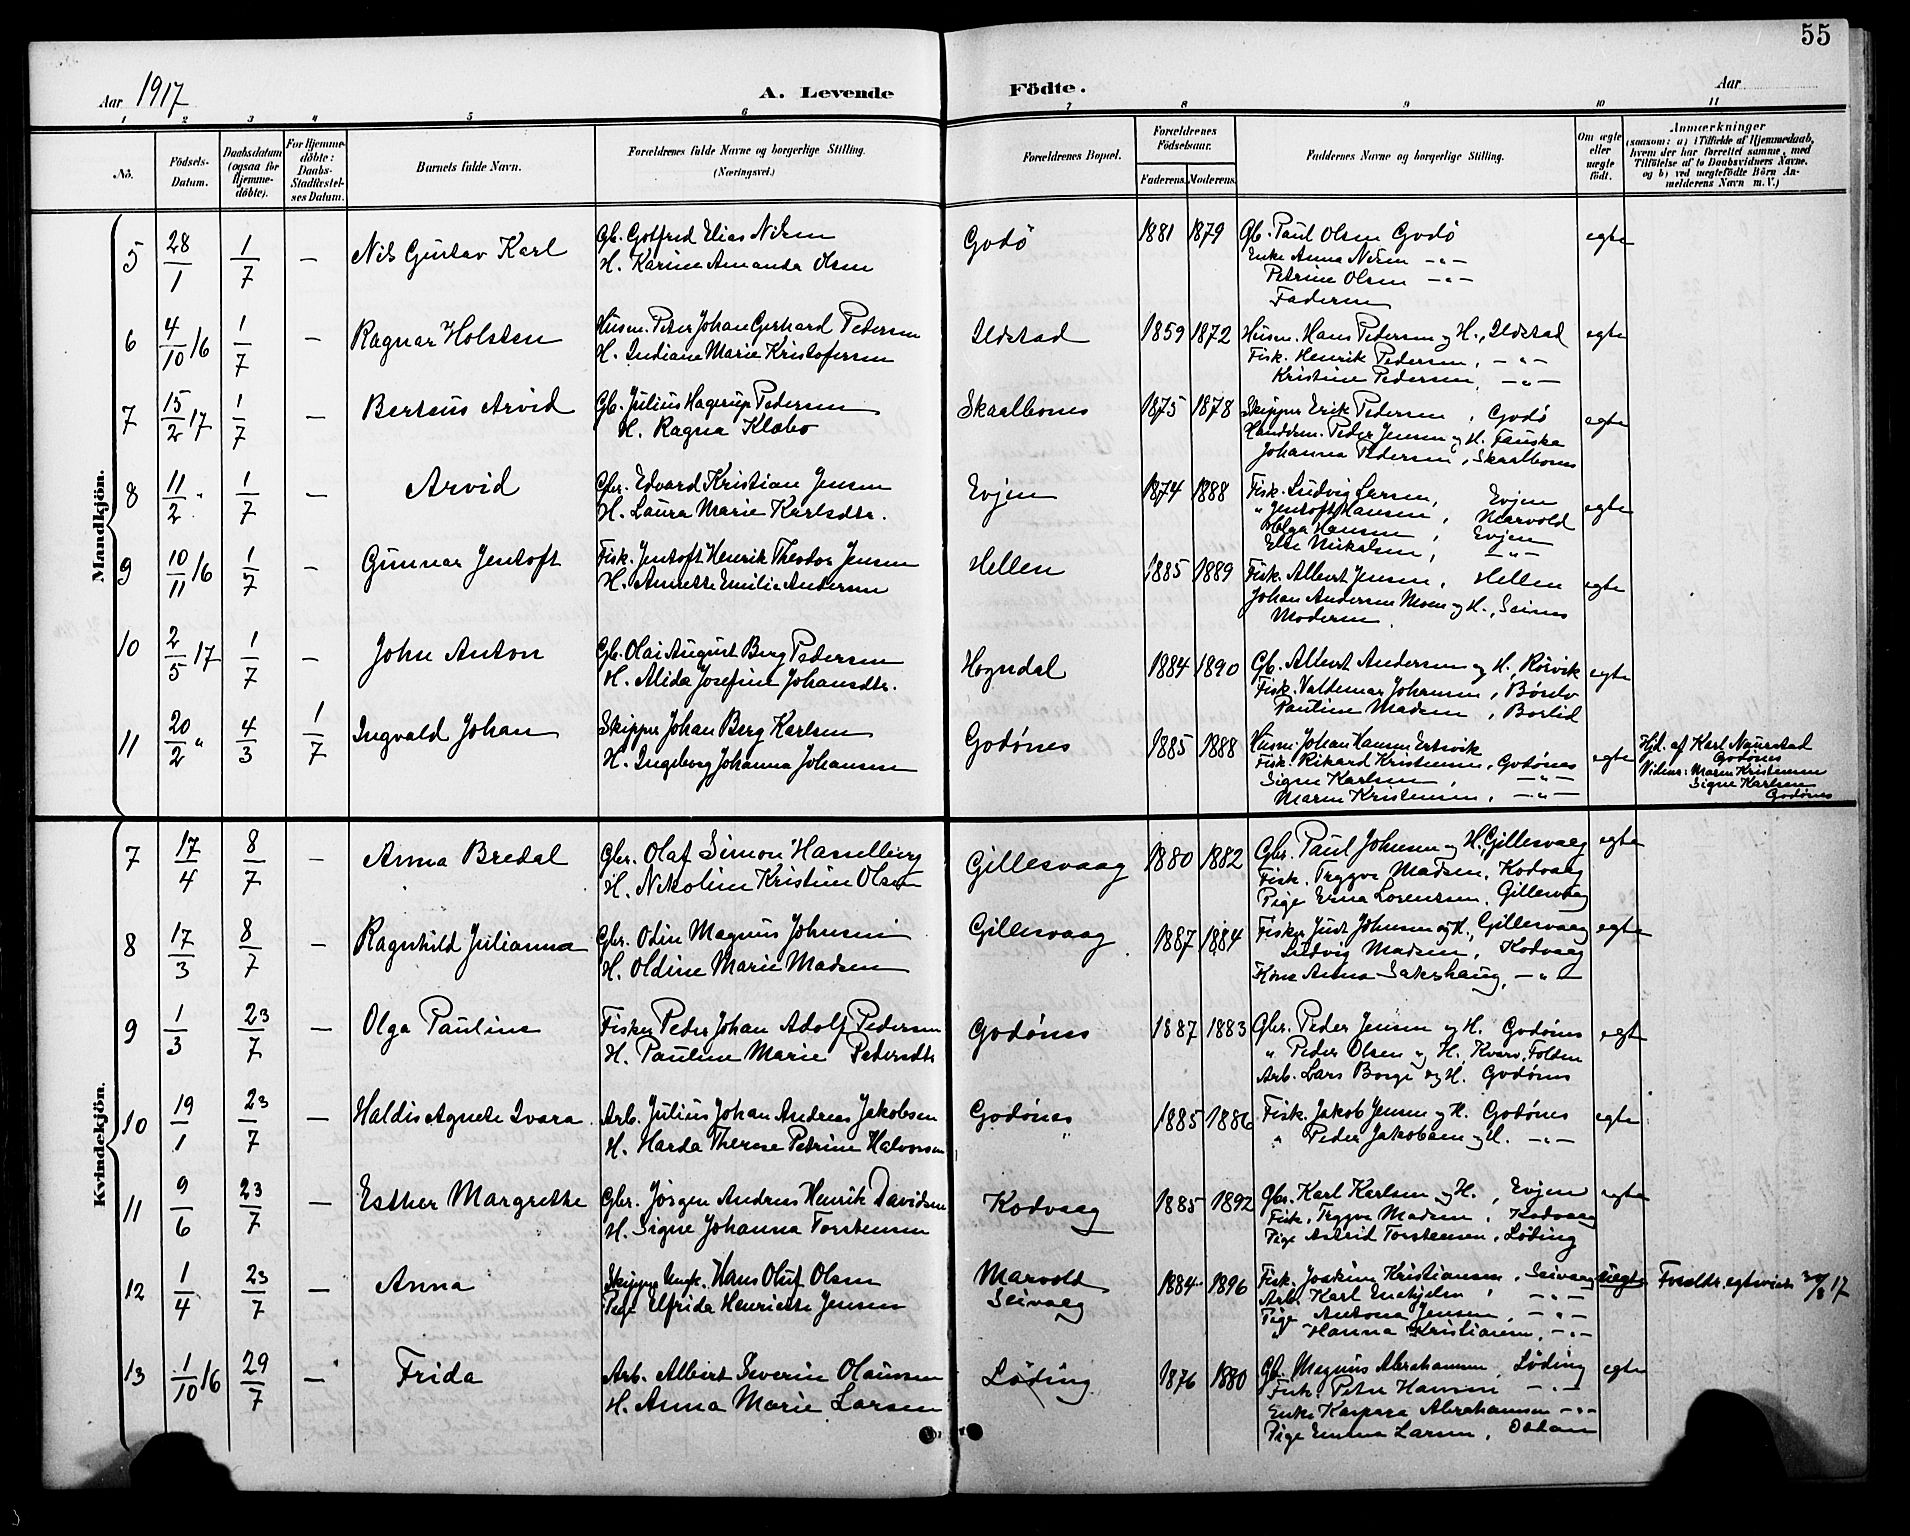 55
Aar 1917 A. Levende Födte. Aar
1 2 3 4 5 6 7 8 9 10 11
No. Födsels-Datum. Daabsdatum (ogsaa for Hjemmedöbte). For Hjemmedöbte: Daabs-Stadfæstelses Datum. Barnets fulde Navn. Forældrenes fulde Navne og borgerlige Stilling. (Næringsvei.) Forældrenes Bopæl. Forældrenes Födselsaar. Faderens. Moderens. Faddernes Navne og borgerlige Stilling. Om ægte eller uægte födt. Anmærkninger (saasom: a) i Tilfælde af Hjemmedaab, hvem der har forrettet samme, med Tilföielse af to Daabsvidners Navne, og b) ved uægtefödte Börn Anmelderens Navn m. V.)
Mandkjön.
5 28/1 1/7 — Nils Gustav Karl Gb. Gotfred Elias Nilsen Godø 1881 1879 Gb. Paul Olsen Godø egte
H. Karine Amanda Olsen Enke Anna Nilsen -"-
Petrine Olsen -"-
Faderen
6 4/10 16 1/7 — Ragnar Holsten Husm. Peter Johan Gerhard Pedersen Ildstad 1859 1872 Husm. Hans Pedersen og H., Ildstad egte
H. Indiane Marie Kristofersen Fisk. Henrik Pedersen, -"-
Kristine Pedersen, -"-
7 15/2 17 1/7 — Berteus Arvid Gb. Julius Hagerup Pedersen Skaalbones 1875 1878 Skipper Erik Pedersen, Godø egte
H. Ragna Klæbo Handelsm. Peder Jensen og H. Fauske
Johanna Pedersen, Skaalbones
8 11/2 " 1/7 — Arvid Gbr. Edvard Kristian Jensen Evjen 1874 1888 Fisk. Ludvig Larsen, Evjen egte
H. Laura Marie Karlsdtr. " Jentoft Hansen, Marvold
Helga Hansen, Evjen
Else Nikolsen, -"-
9 10/11 16 1/7 — Gunnar Jentoft Fisk. Jentoft Henrik Theodor Jensen Hellen 1885 1889 Fisk. Albert Jensen, Hellen egte
H. Annette Emilie Andersen Johan Andersen Moen og H., Seines
Moderen
10 2/5 17 1/7 — John Anton Gb. Olai August Berg Pedersen Hogndal 1884 1890 Gb. Albert Andersen og H. Rørvik egte
H. Alida Josefine Johansdtr. Fisk. Valdemar Johansen,
Pauline Madsen, Borlid
11 20/2 " 4/3 1/7 Ingvald Johan Skipper Johan Berg Karlsen Godønes 1885 1888 Husm. Johan Hansen Ertsvik egte Hjd. af Karl Naurstad
H. Ingeborg Johanna Johansen Fisk. Rikard Kristensen, Godønes Godønes
Signe Karlsen, -"- Vidner: Maren Kristensen
Maren Kristensen, -"- Signe Karlsen
Godønes
Kvindekjön.
7 17/4 8/7 — Anna Bredal Gbr. Olaf Simon Hasselberg Gillesvaag 1880 1882 Gbr. Paul Johnsen og H., Gillesvaag egte
H. Nikoline Kristine Olsen Fisk. Trygve Madsen, Kodvaag
Pige Erna Lorensen, Gillesvaag
8 17/3 8/7 — Ragnhild Julianna Gbr. Odin Magnus Johnsen Gillesvaag 1887 1884 Fisker Just Johnsen og H., Gillesvaag egte
H. Oldine Marie Madsen Ludvig Madsen, Kodvaag
Kone Anna Sakshaug, -"-
9 1/3 23/7 — Olga Pauline Fisker Peder Johan Adolf Pedersen Godønes 1887 1883 Gbr. Peder Jensen og H. Godønes egte
H. Pauline Marie Pedersdtr " Peder Olsen og H. Kvarv, Folden
Arb. Lars Borge og H. Godønes
10 19/1 23/7 — Haldis Agnete Ivara Arb. Julius Johan Andreas Jakobsen Godønes 1885 1886 Fisk. Jakob Jensen og H. Godønes egte
H. Harda Therese Petrine Halvorsen " Peder Jakobsen og H. -"-
11 9/6 23/7 — Esther Margrethe Gbr. Jørgen Andreas Henrik Davidsen Kodvaag 1885 1892 Gbr. Karl Karlsen og H., Evjen egte
H. Signe Johanna Torstensen Fisk. Trygve Madsen, Kodvaag
Pige Astrid Torstensen, Løding
12 1/4 23/7 — Anna Skipper Ungk. Hans Oluf Olsen Marvold 1884 1896 Fisk. Joakim Kristiansen, Seivaag uegte
Pige Elfrida Henriette Jensen Seivaag Arb. Karl, -"-
Pige Antona Jensen, -"-
" Hanna Kristiansen, -"-
13 1/10 16 29/7 — Frida Arb. Albert Severin Olausen Løding 1876 1880 Gb. Magnus Abrahamsen, Løding egte
H. Anna Marie Larsen Fisk. Peter Hansen -"-
Enke Kaspara Abrahamsen -"-
Pige Emma Larsen,